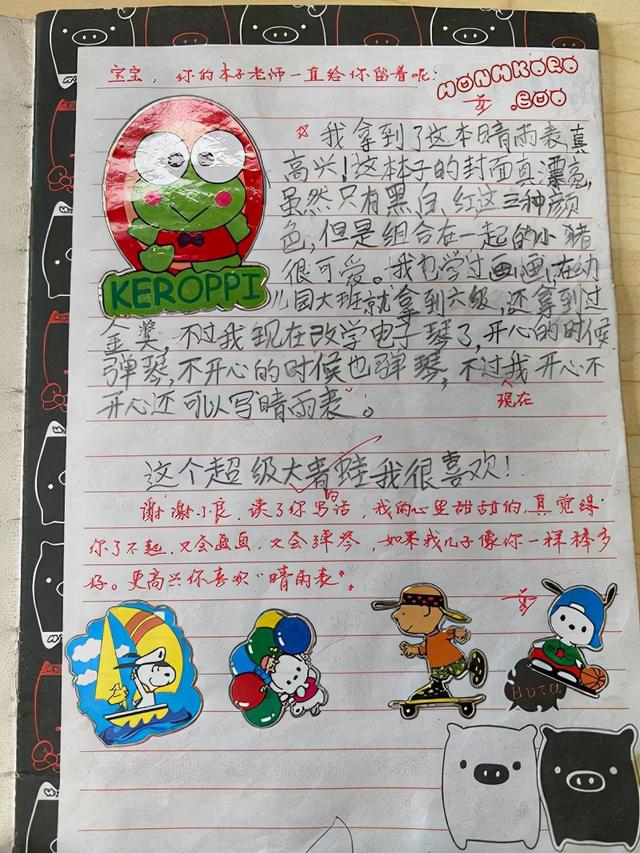 宝宝，你的本子老师一直给你留着呢！
MONMKORO
.BOO
我拿到了这本晴雨表，真
高兴！这本子的封面真漂亮，
虽然只有黑、白、红这三种颜
色，但是组合在一起的小猪
很可爱。我也学过画画，在幼
儿园大班就拿到六级，还拿到过
KEROPPI
金奖，不过我现在改学电子琴了，开心的时候
弹琴，不开心的时候也弹琴，不过我开心不
现在
开心还可以写晴雨表。
这个超级大青蛙我很喜欢！
谢谢小良，读了你的写话，我的心里甜甜的，真觉得
你了不起，又会画画，又会弹琴，如果我儿子像你一样棒多
好。更高兴你喜欢“晴雨表”。